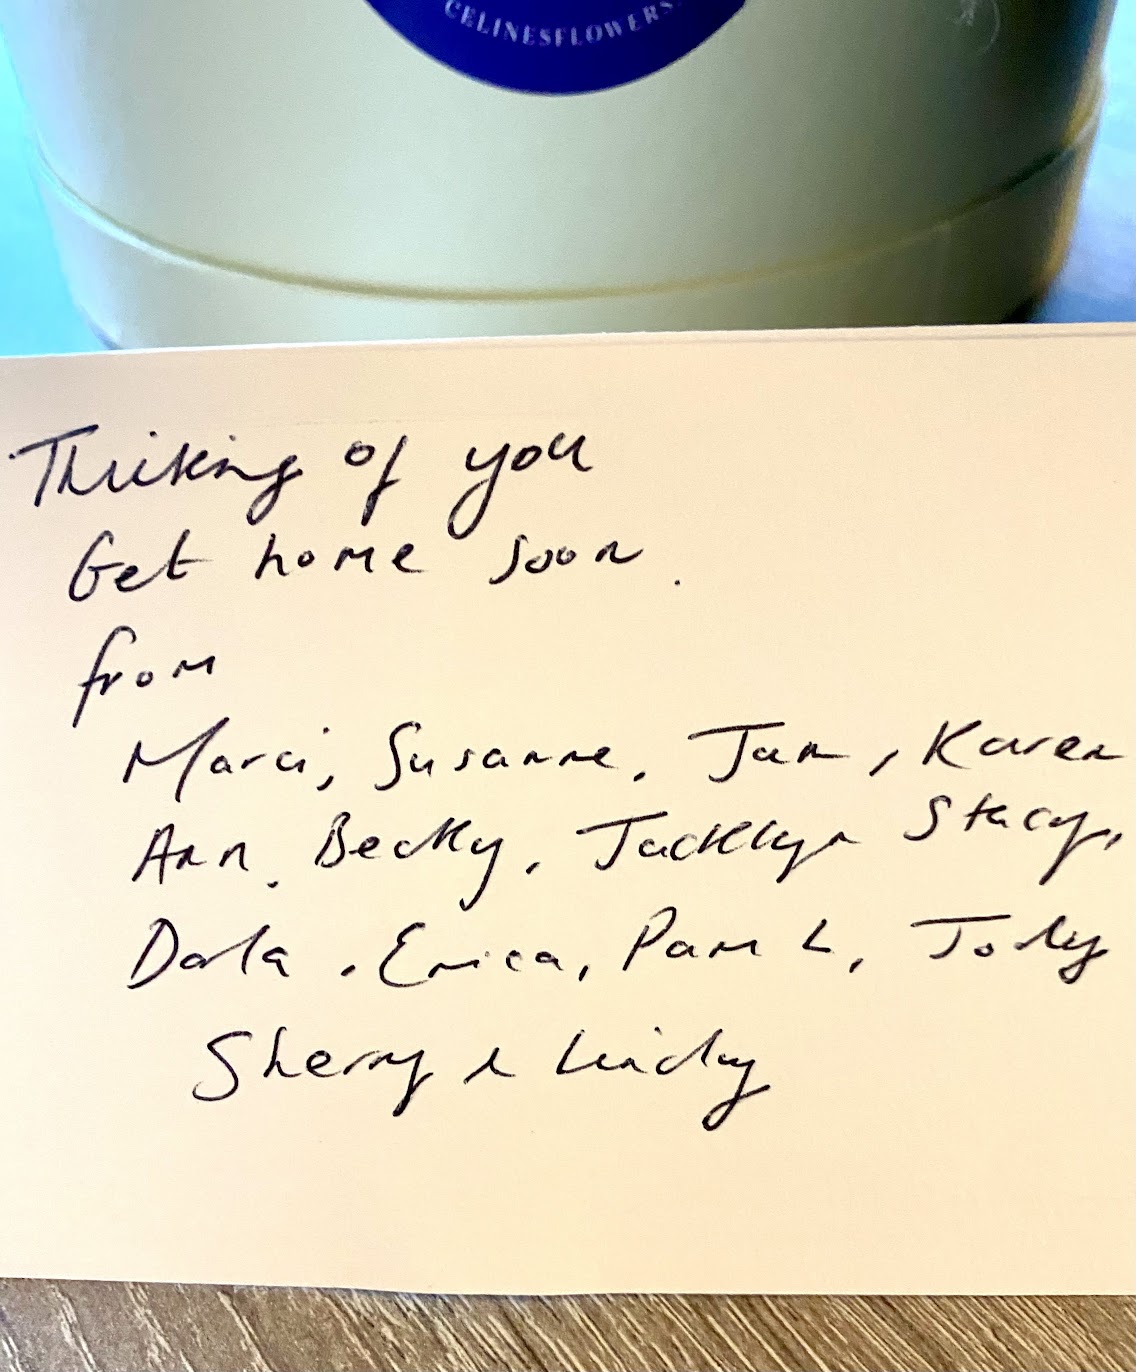 CELINESFLOWERS.
Thinking of you
Get home soon.
from
Marci, Susanne, Jan, Karen
Ann, Becky, Jacklyn Stacy,
Darla, Erica, Pam L, Jody
Sherry & Lindy